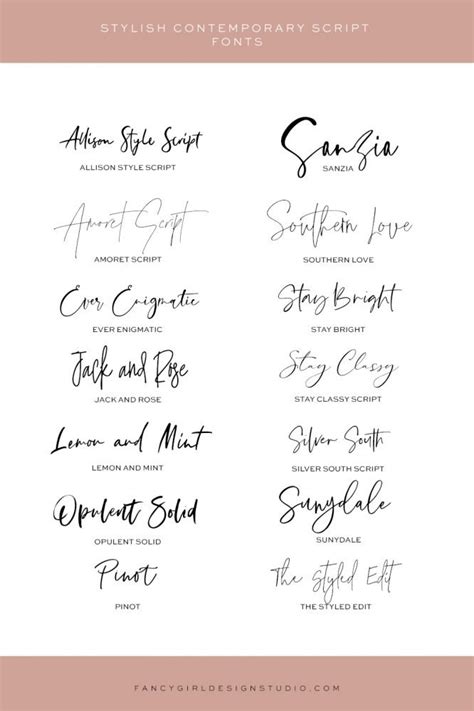 STYLISH CONTEMPORARY SCRIPT
FONTS
Allison Style Script
ALLISON STYLE SCRIPT
Sanzia
SANZIA
Amoret Script
AMORET SCRIPT
Southern Love
SOUTHERN LOVE
Ever Enigmatic
EVER ENIGMATIC
Stay Bright
STAY BRIGHT
Jack and Rose
JACK AND ROSE
Stay Classy
STAY CLASSY SCRIPT
Lemon and Mint
LEMON AND MINT
Silver South
SILVER SOUTH SCRIPT
Opulent Solid
OPULENT SOLID
Sunydale
SUNYDALE
Pinot
PINOT
The Styled Edit
THE STYLED EDIT
FANCYGIRLDESIGNSTUDIO.COM